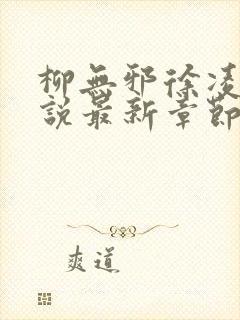 柳無邪徐凌
說最新章節
爽道